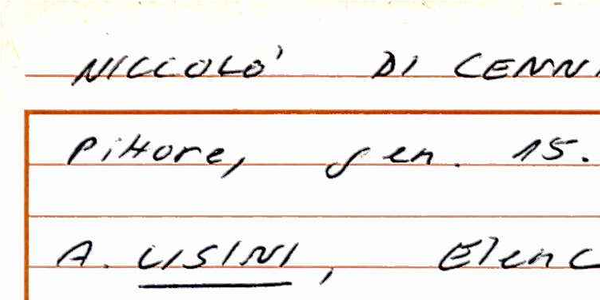 NICCOLO' DI CENN
Pittore, sen. 15.
A. LISINI, Elenc